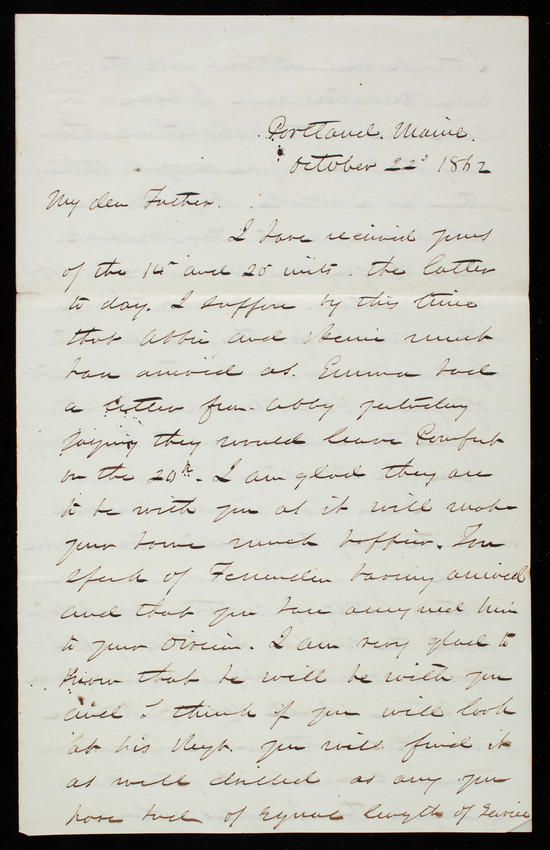 Portland. Maine.
October 22d 1862
My dear Father.
I have received yours
of the 15 and 20 insts. the latter
to day. I suppose by this time
that Abbie and must
have arrived as. Emma had
a letter from Abby yesterday
saying they would leave
on the 20th. I am glad they are
to be with you as it will make
your home much happier. You
speak of Fessenden having arrived
and that you have assigned him
to your Division. I am very glad to
know that he will be with you
and I think if you will look
at his Regt. you will find it
as well drilled as any you
have had of equal length of Service